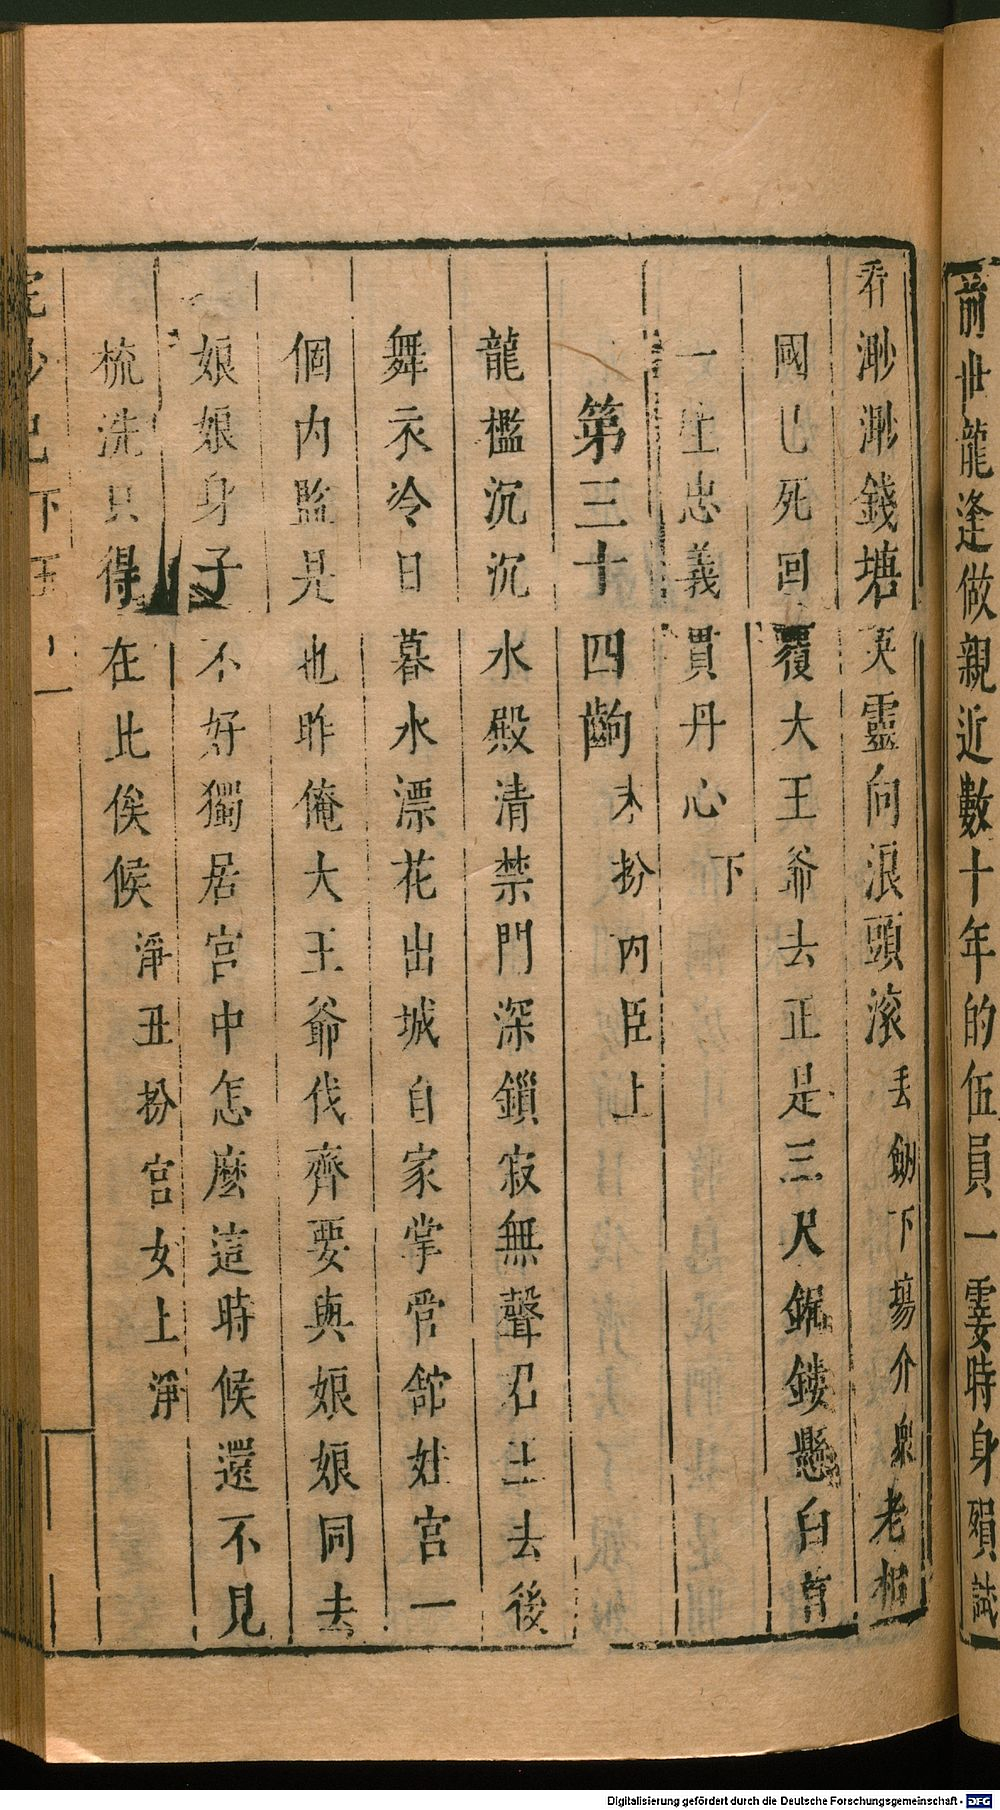 前世龍逢做親近數十年的伍員一霎時身殞試
看渺渺錢塘英靈向浪頭滚丢劒下塲介衆老相
國已死回覆大王爺去正是三尺鋸鏤懸白首
一生忠義貫丹心下
第三十四齣末扮内臣上
龍檻沉沉水殿清禁門深鎻寂無聲君王去後
舞衣冷日暮水漂花出城自家掌管舘娃宫一
個内監是也昨俺大王爺伐齊要與娘娘同去
娘娘身子不好獨居宫中怎麽這時候還不見
梳洗只得在此俟候淨丑扮宫女上淨
浣沙記下 十一
Digitalisierung gefördert durch die Deutsche Forschungsgemeinschaft - DFG